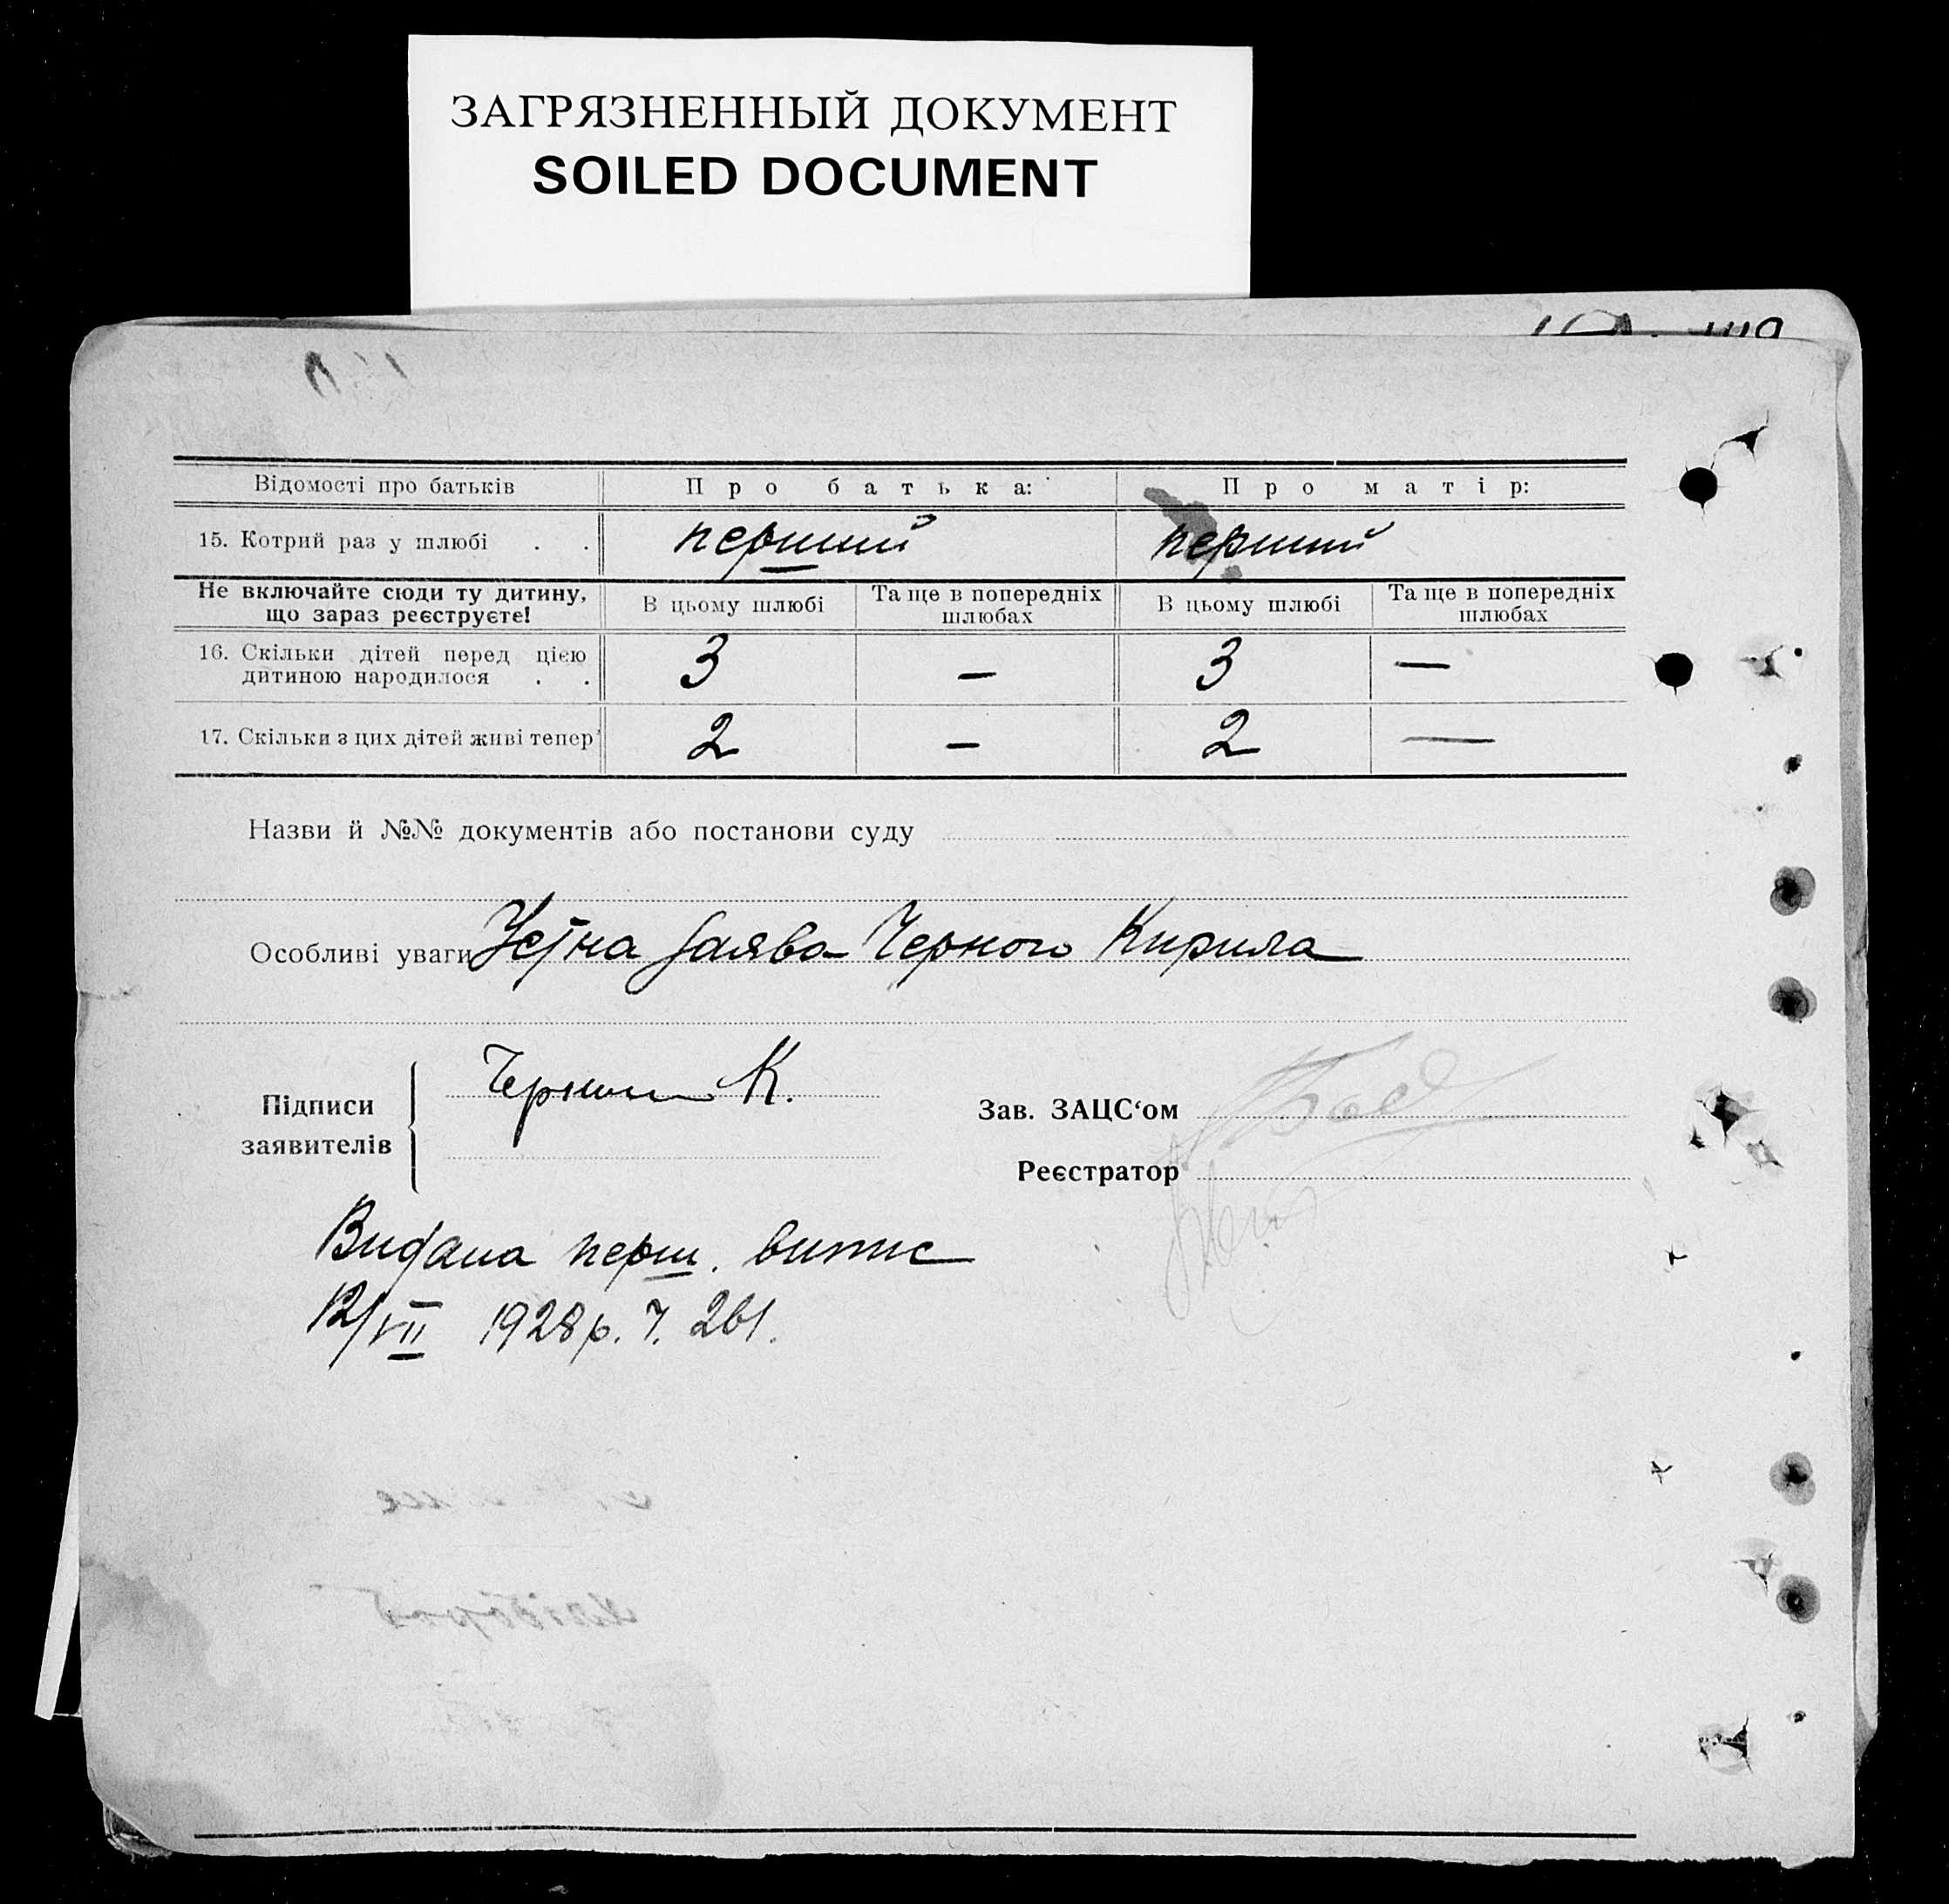 ЗАГРЯЗНЕННЫЙ ДОКУМЕНТ
SOILED DOCUMENT
Відомості про батьків Про батька: Про матір:
15. Котрий раз у шлюбі . . перший перший
Не включайте сюди ту дитину, що зараз реєструєте! В цьому шлюбі Та ще в попередніх шлюбах В цьому шлюбі Та ще в попередніх шлюбах
16. Скільки дітей перед цією дитиною народилося . . 3 — 3 —
17. Скільки з цих дітей живі тепер 2 — 2 —
Назви й №№ документів або постанови суду
Особливі уваги Устна заява Черного Кирила
Підписи заявителів К.
Зав. ЗАЦС‘ом
Реєстратор
Видана перш. випис
12/VII 1928 р. Ч. 261.